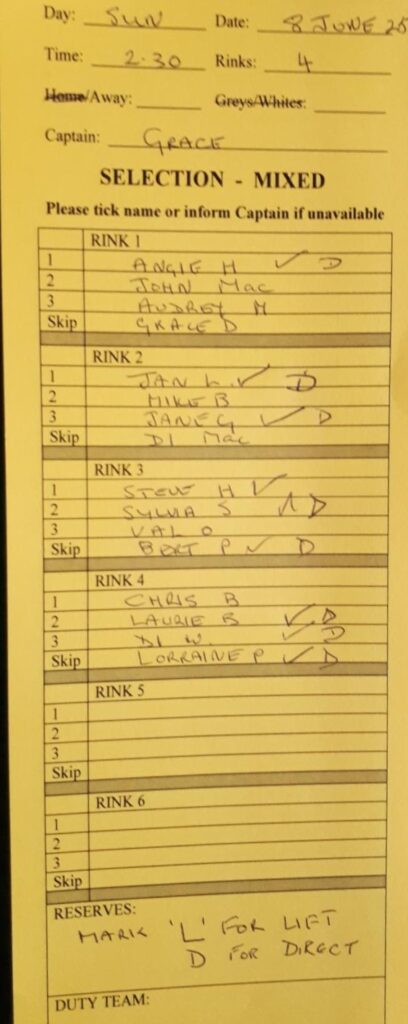 Day: SUN Date: 8 JUNE 25
Time: 2.30 Rinks: 4
Home/Away: Greys/Whites:
Captain: GRACE
SELECTION - MIXED
Please tick name or inform Captain if unavailable
RINK 1
1 ANGIE H ✓ D
2 JOHN Mac
3 AUDREY M
Skip GRACE D
RINK 2
1 JAN L. ✓ D
2 MIKE B
3 JANE G ✓ D
Skip DI Mac
RINK 3
1 STEVE H ✓
2 SYLVIA S ✓ D
3 VAL O
Skip BERT P ✓ D
RINK 4
1 CHRIS B
2 LAURIE B ✓ D
3 DI W. ✓ D
Skip LORRAINE P ✓ D
RINK 5
1
2
3
Skip
RINK 6
1
2
3
Skip
RESERVES:
MARK 'L' FOR LIFT
D FOR DIRECT
DUTY TEAM: